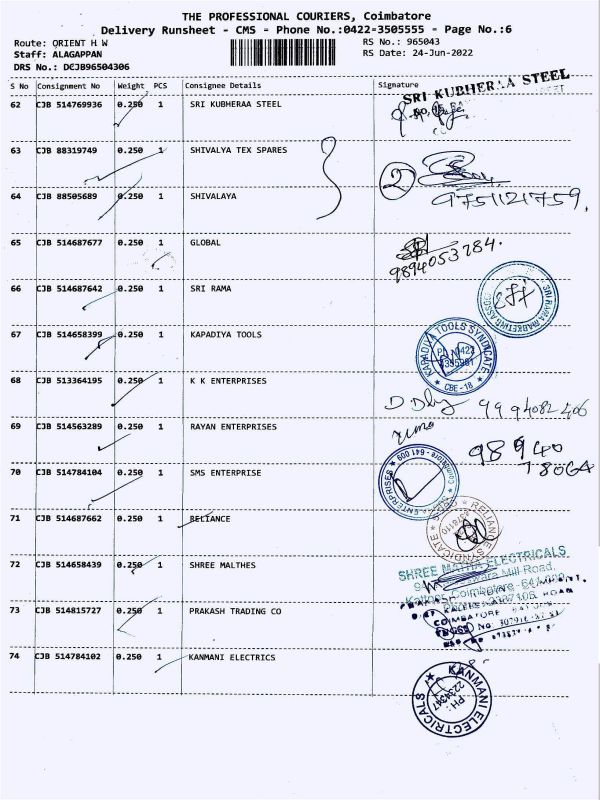 THE PROFESSIONAL COURIERS, Coimbatore
Delivery Runsheet - CMS - Phone No.:0422-3505555 - Page No.:6
Route: ORIENT H W
RS No.: 965043
Staff: ALAGAPPAN
RS Date: 24-Jun-2022
DRS No.: DCJB96504306
S No Consignment No Weight PCS Consignee Details Signature
SRI KUBHERAA STEEL
62 CJB 514769936 0.250 1 SRI KUBHERAA STEEL
63 CJB 88319749 0.250 1 SHIVALYA TEX SPARES
2
64 CJB 88505689 0.250 1 SHIVALAYA
9751121759.
65 CJB 514687677 0.250 1 GLOBAL
9894053784.
66 CJB 514687642 0.250 1 SRI RAMA
SRI RAMA MARKETING ASSOC
67 CJB 514658399 0.250 1 KAPADIYA TOOLS
KAPADIYA TOOLS SYNDICATE
CBE - 18
68 CJB 513364195 0.250 1 K K ENTERPRISES
9994082406
69 CJB 514563289 0.250 1 RAYAN ENTERPRISES
98940
78064
70 CJB 514784104 0.250 1 SMS ENTERPRISE
ENTERPRISES Coimbatore - 641 009
71 CJB 514687662 0.250 1 RELIANCE
RELIANCE SYNDICATE
72 CJB 514658439 0.250 1 SHREE MALTHES
SHREE MATHA ELECTRICALS
Mill Road,
Kattoor, Coimbatore - 641 009
73 CJB 514815727 0.250 1 PRAKASH TRADING CO
COIMBATORE
74 CJB 514784102 0.250 1 KANMANI ELECTRICS
KANMANI ELECTRICALS
PH :
2234347